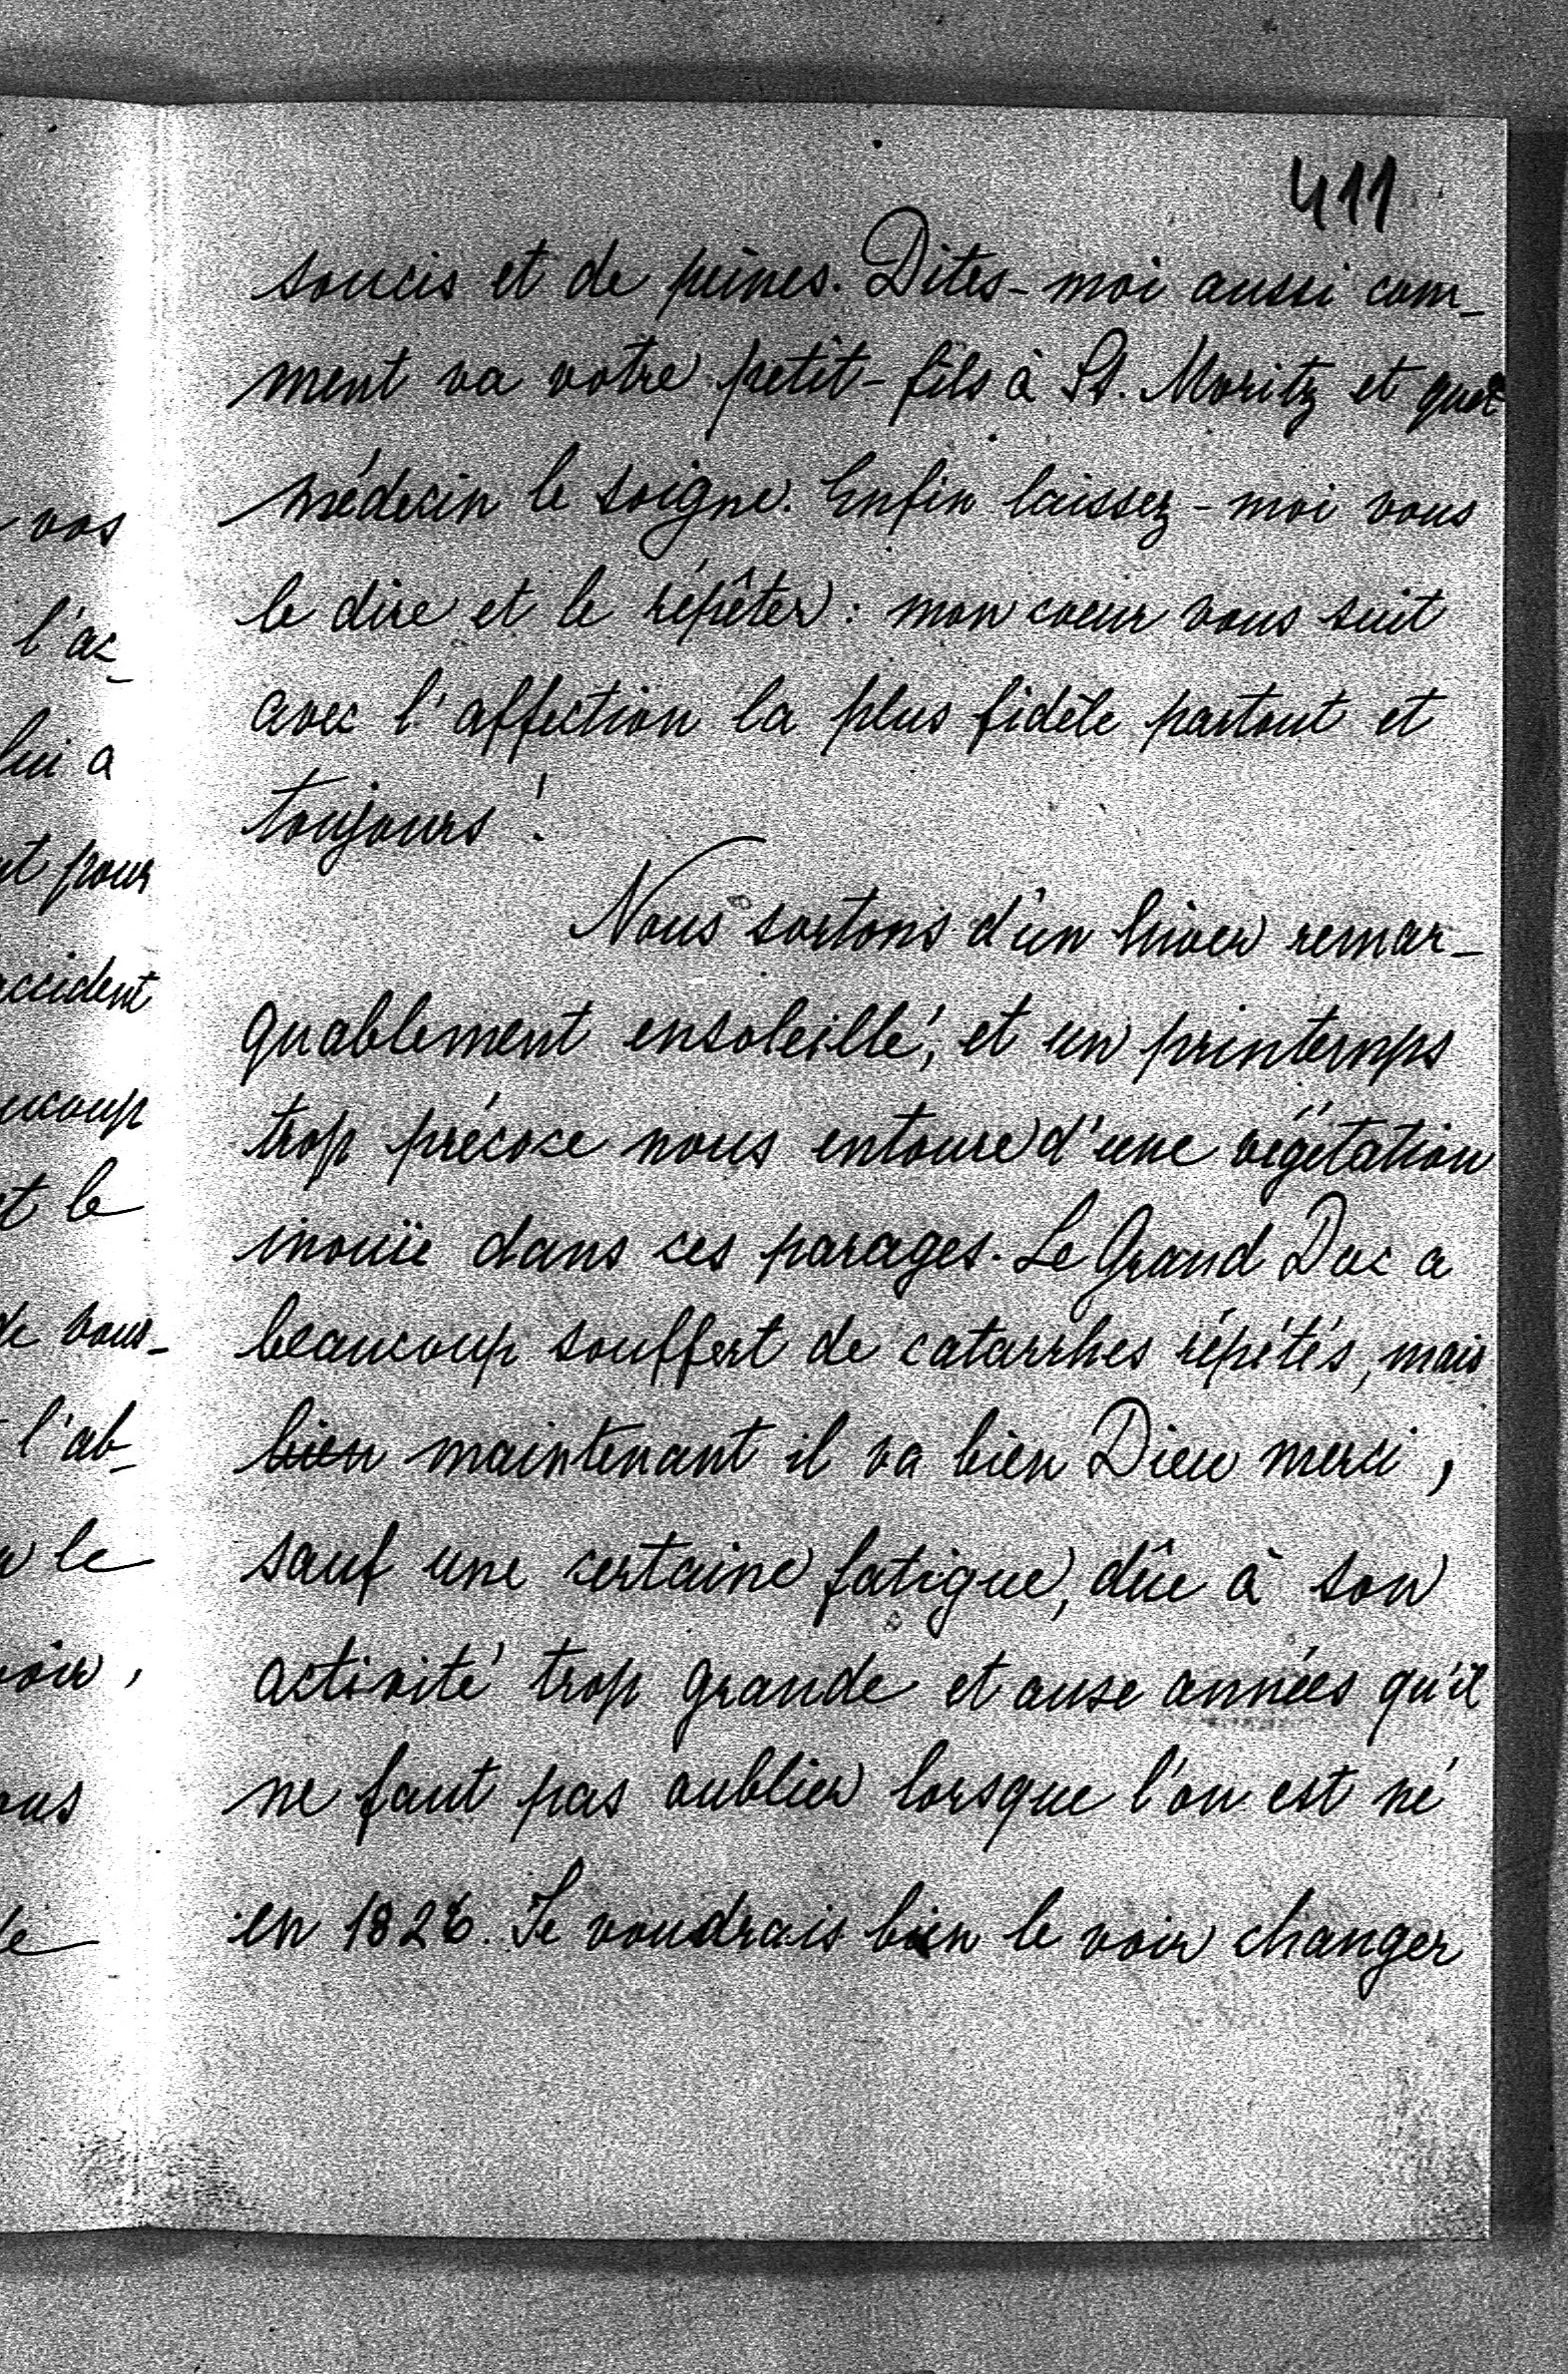 411
soucis et de peines. Dites-moi aussi com-
ment va votre petit-fils à St. Moritz et quel
médecin le soigne. Enfin laissez-moi vous
le dire et le répéter: mon coeur vous suit
avec l'affection la plus fidèle partout et
toujours!
Nous sortons d'un hiver remar-
quablement ensoleillé, et un printemps
trop précoce nous entoure d'une végétation
inouïe dans ces parages. Le Grand Duc a
beaucoup souffert de catarrhes répétés, mais
bien maintenant il va bien Dieu merci,
sauf une certaine fatigue, dûe à son
activité trop grande et aux années qu'il
ne faut pas oublier lorsque l'on est né
en 1826. Je voudrais bien le voir changer
vos
l'ac-
lui a
pour
accident
le
de vous-
l'ab-
le